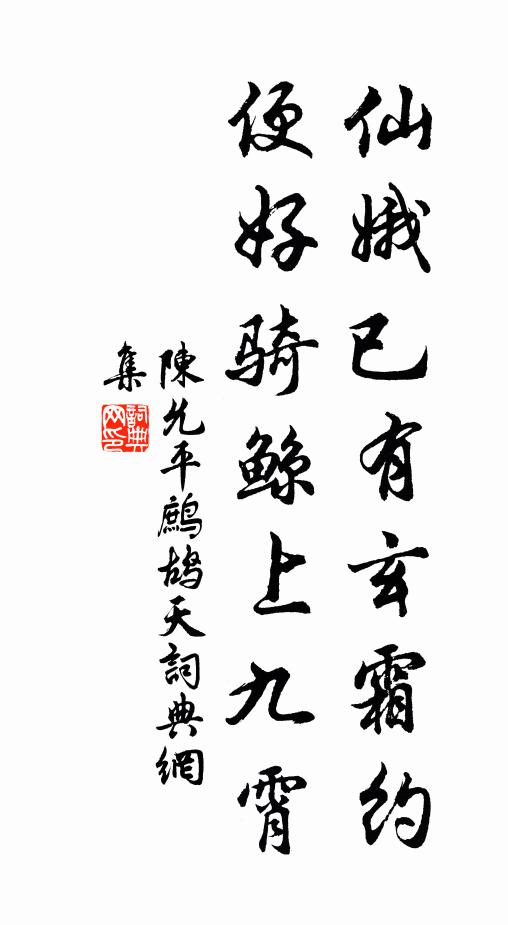 仙娥已有玄霜約
便好骑鲸上九霄
陳允平鷓鴣天詞典網
集
詞典网印